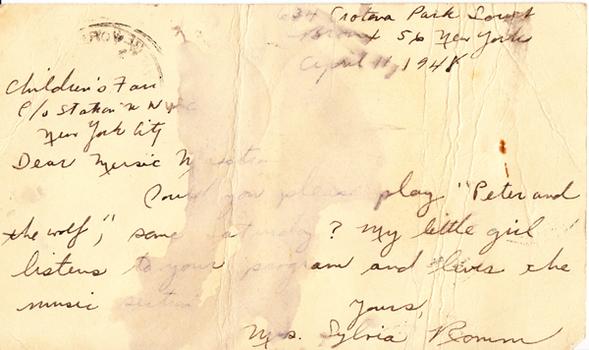 634 Crotona Park South
Bronx 56 New York
April 11, 1948
Children's Fair
c/o Station
New York City
Dear Music
Could you please play "Peter and
the wolf", some Saturday? My little girl
listens to your program and loves the
music
Yours,
Mrs. Sylvia